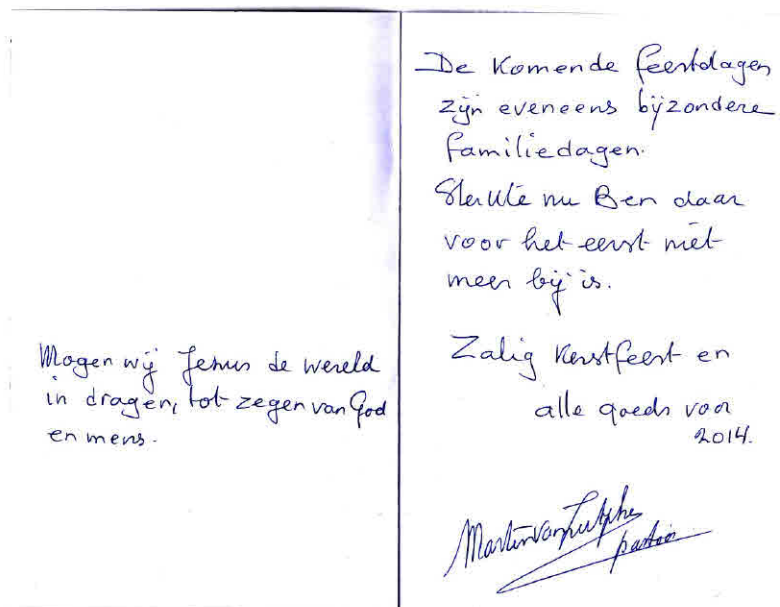 Mogen wij Jezus de wereld
in dragen, tot zegen van God
en mens.
De komende feestdagen
zijn eveneens bijzondere
familiedagen.
Sterkte nu Ben daar
voor het eerst niet
meer bij is.
Zalig Kerstfeest en
alle goeds voor
2014.
Martin van
pastoor